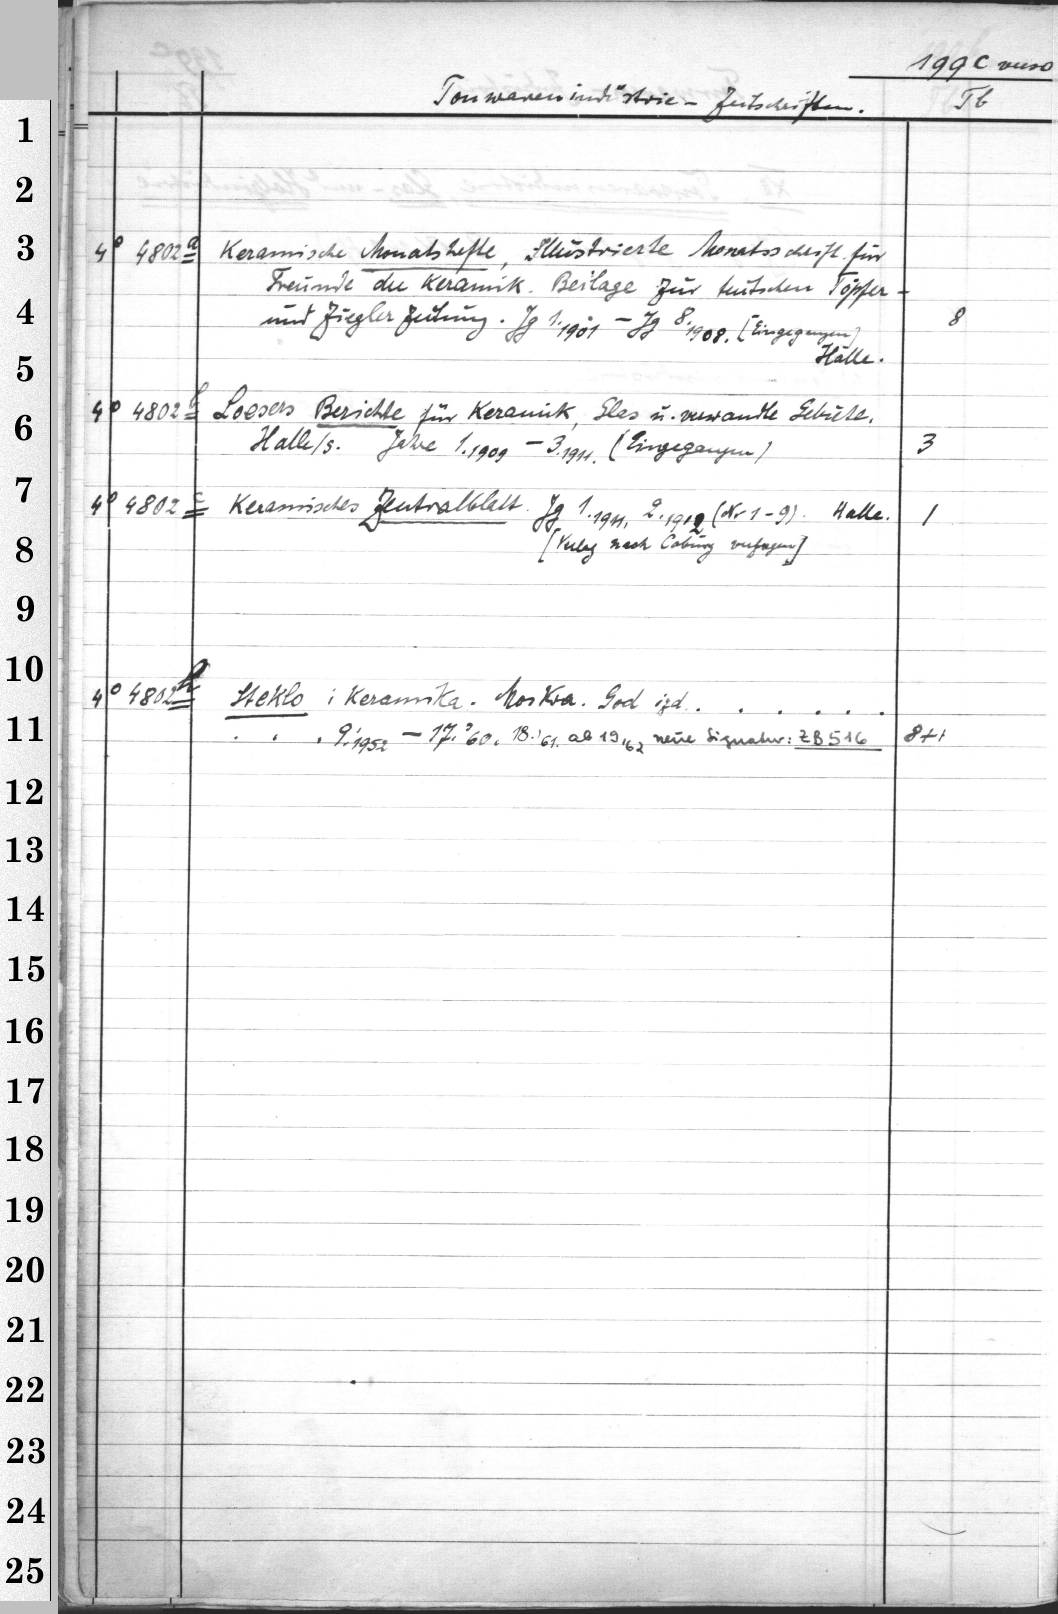 199c verso
Tonwarenindustrie - Zeitschriften. Tb
1
2
3 4° 4802a Keramische Monatshefte, Illustrierte Monatsschrift für
Freunde der Keramik. Beilage zur deutschen Töpfer-
4 und Ziegler Zeitung. Jg 1.1901 - Jg 8.1908. [Eingegangen] 8
Halle.
5
6 4° 4802b Loesers Berichte für Keramik, Glas u. verwandte Gebiete.
Halle/S. Jahr 1.1909 - 3.1911. (Eingegangen) 3
7 4° 4802c Keramisches Zentralblatt. Jg 1.1911, 2.1912 (Nr 1-9). Halle. 1
8 [Verlag nach Coburg verzogen]
9
10 4° 4802h Steklo i Keramika. Moskva. God izd. . . . . . .
11 . . . 9.1952 - 17.'60. 18.'61. ab 19,'62 neue Signatur: ZB 516 8++
12
13
14
15
16
17
18
19
20
21
22
23
24
25